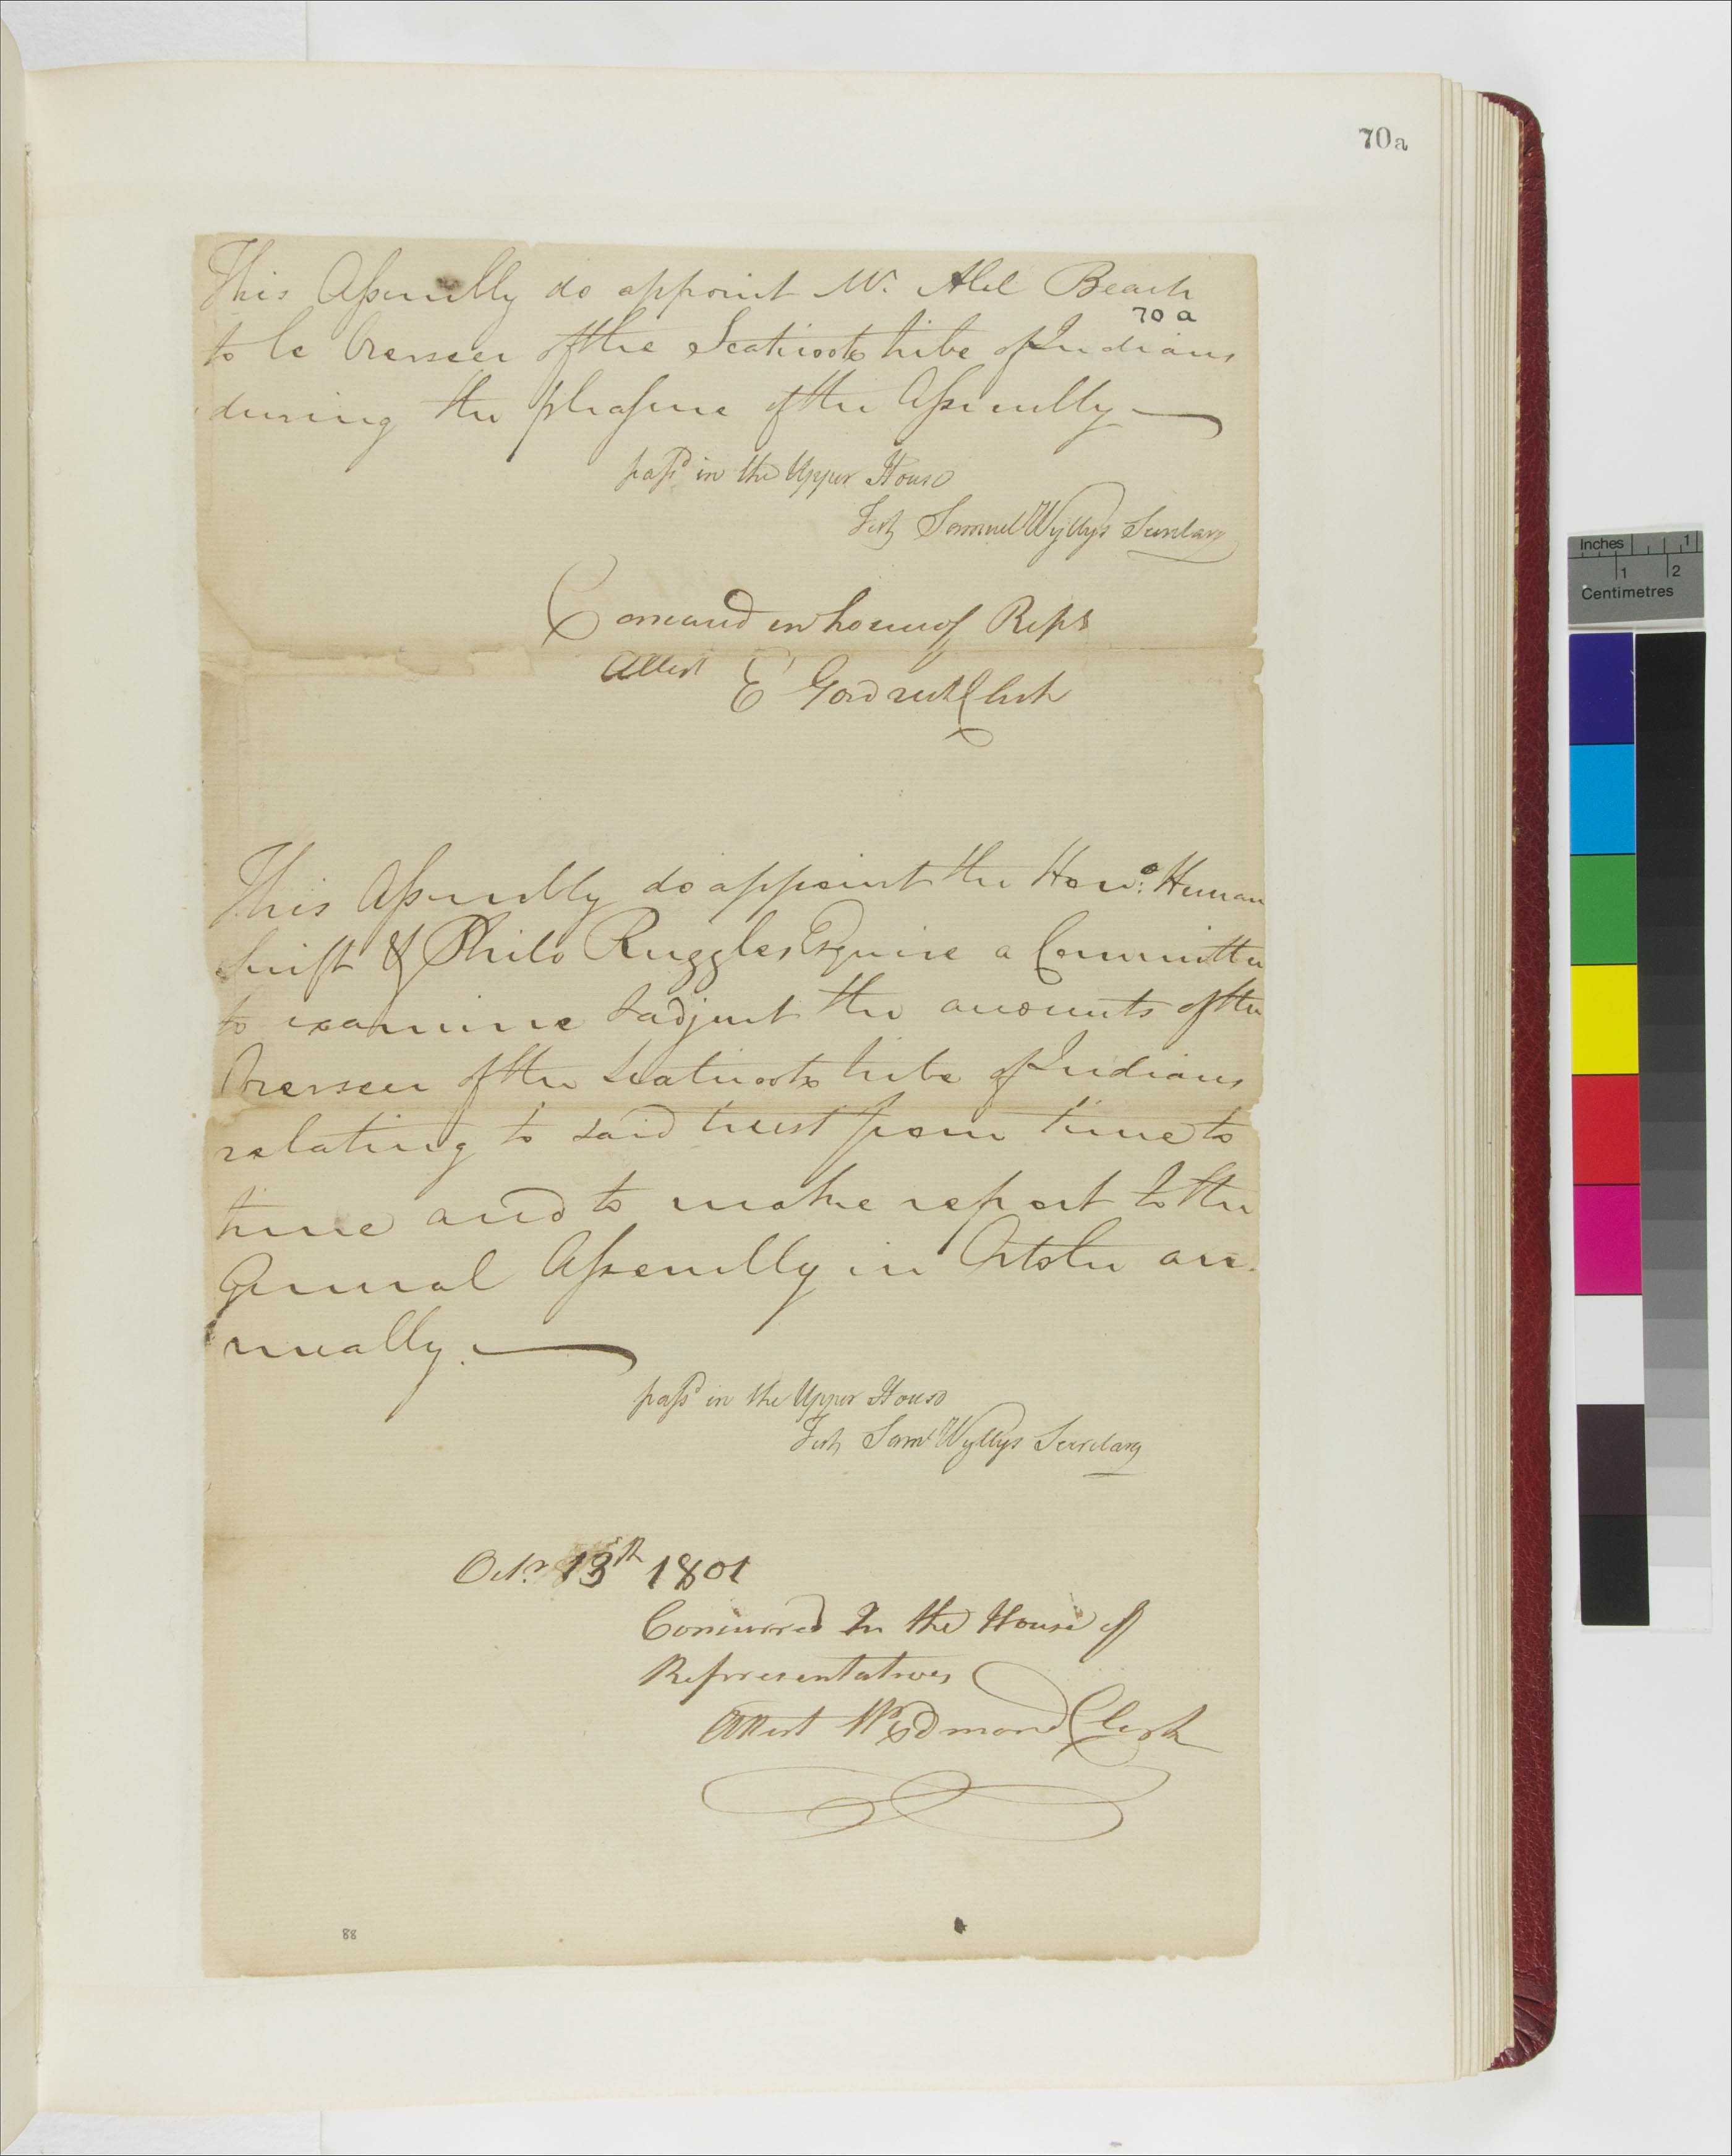 70a
This Assembly do appoint Mr. Abel Beach
70 a
to be Overseer of the Scaticook tribe of Indians
during the pleasure of the Assembly
passd in the Upper House
Test Samuel Wyllys Secretary
Concurred in house of Reps
Attest E Goodrich Clerk
This Assembly do appoint the Honl. Heman
Swift & Philo Ruggles Esquire a Committee
to examine & adjust the accounts of the
Overseer of the Scaticook tribe of Indians
relating to said trust from time to
time and to make report to the
General Assembly in October an-
nually.
passd in the Upper House
Test Saml Wyllys Secretary
Octr. 13th 1801
Concurred In the House of
Representatives
Attest Wm Edmond Clerk
88
Inches 1
1 2
Centimetres